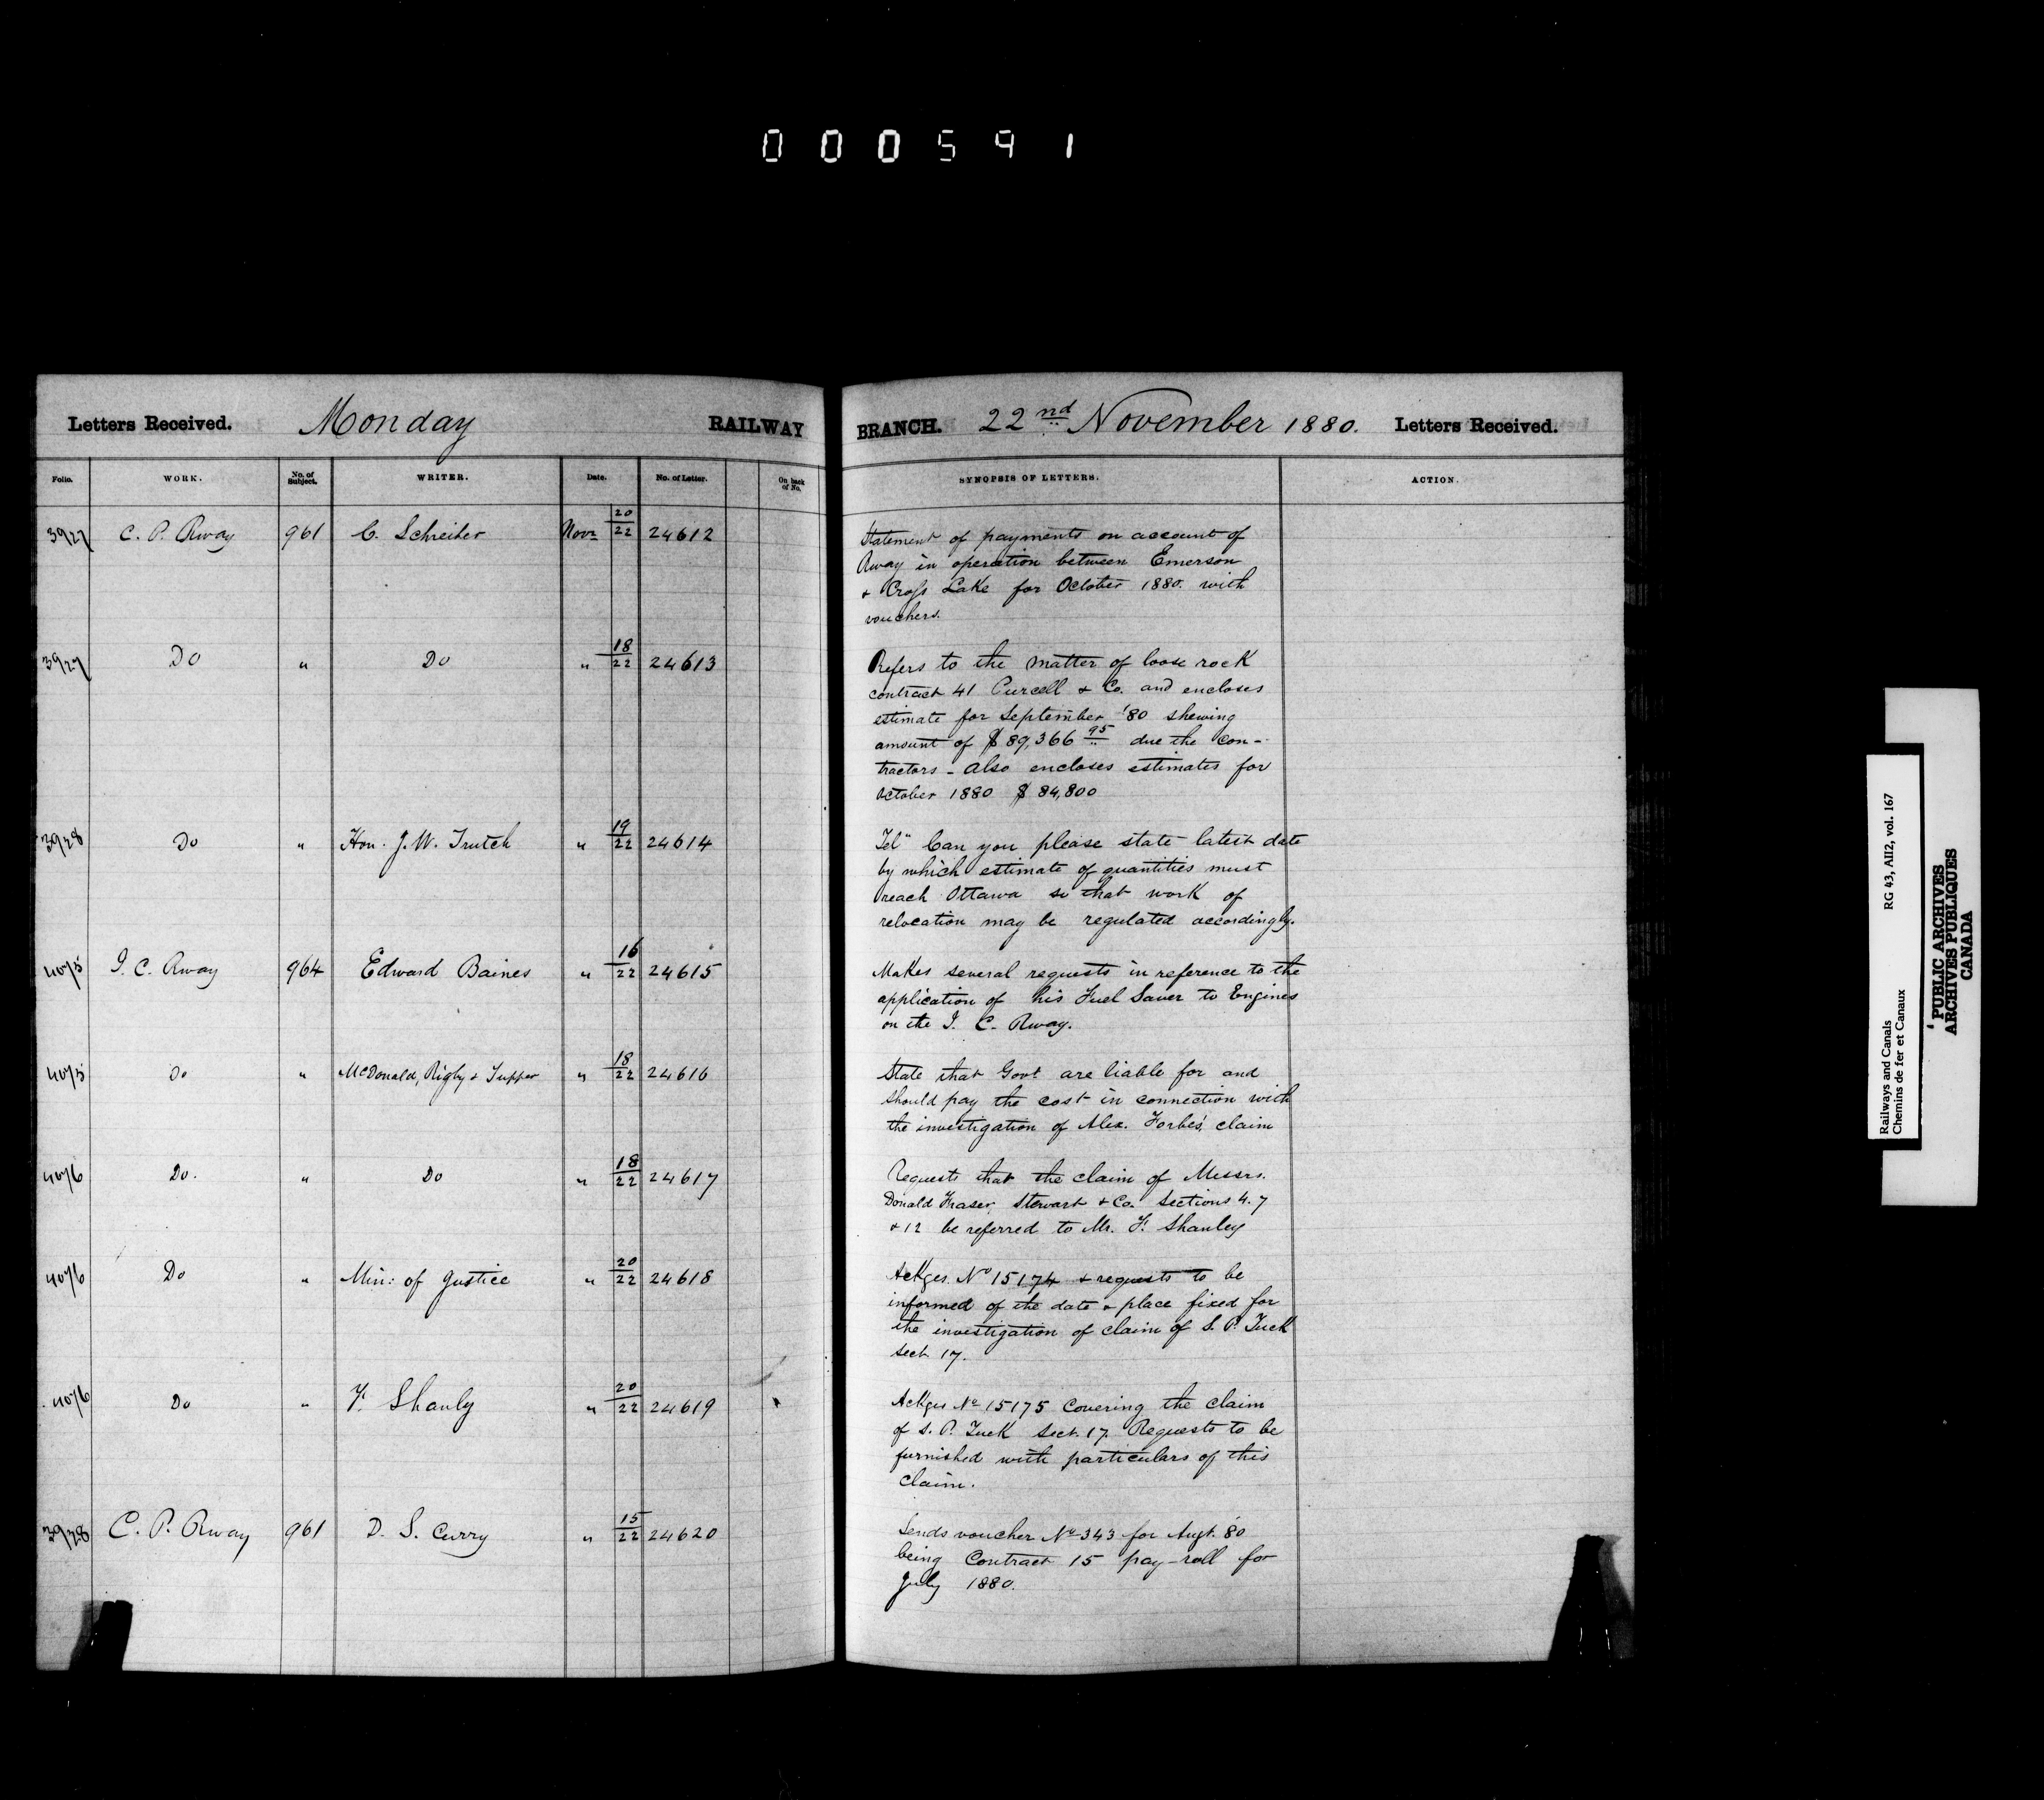 000591
Letters Received. Monday RAILWAY BRANCH. 22nd November 1880. Letters Received.
Folio. WORK. No. of Subject. WRITER. Date. No. of Letter. On back of No. SYNOPSIS OF LETTERS. ACTION.
3927 C. P. Rway 961 C. Schreiber Novr 20/22 24612 Statement of payments on account of
Rway in operation between Emerson
& Cross Lake for October 1880. with
vouchers.
3927 Do " Do " 18/22 24613 Refers to the matter of loose rock
contract 41 Purcell & Co. and encloses
estimate for September '80 shewing
amount of $89,366 95 due the con-
tractors - also encloses estimates for
October 1880 $84,800
3928 Do " Hon. J. W. Trutch " 19/22 24614 Tel" Can you please state latest date
by which estimate of quantities must
reach Ottawa so that work of
relocation may be regulated accordingly.
4075 I. C. Rway 964 Edward Baines " 16/22 24615 Makes several requests in reference to the
application of his Fuel Saver to Engines
on the I. C. Rway.
4075 Do " McDonald, Rigby & Tupper " 18/22 24616 State that Govt are liable for and
should pay the cost in connection with
the investigation of Alex. Forbes' claim
4076 Do. " Do " 18/22 24617 Requests that the claim of Messrs.
Donald Fraser, Stewart & Co. Sections 4. 7
& 12 be referred to Mr. F. Shanley
4076 Do " Min: of Justice " 20/22 24618 Ackges. No 15174 & requests to be
informed of the date & place fixed for
the investigation of claim of S. P. Tuck
Sect. 17.
4076 Do " F. Shanly " 20/22 24619 Ackges No 15175 Covering the claim
of S. P. Tuck Sect. 17. Requests to be
furnished with particulars of this
claim.
3928 C. P. Rway 961 D. S. Curry " 15/22 24620 Sends voucher No 343 for Augt. '80
being Contract 15 pay-roll for
July 1880.
Railways and Canals RG 43, AII2, vol. 167
Chemins de fer et Canaux
PUBLIC ARCHIVES
ARCHIVES PUBLIQUES
CANADA